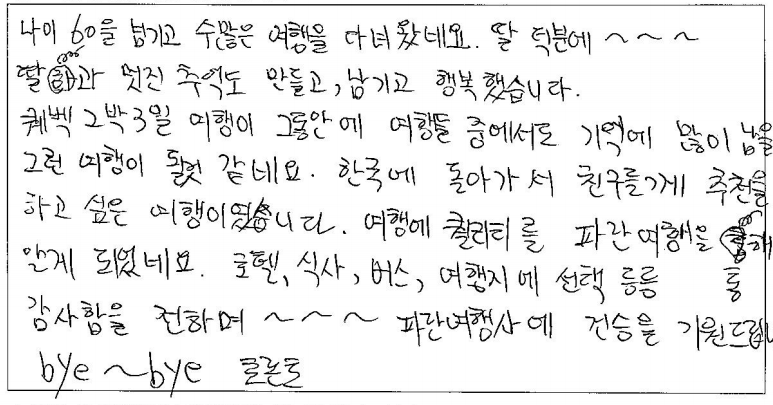 나이 60을 넘기고 수많은 여행을 다녀왔네요. 딸 덕분에 ~~~
딸과 멋진 추억도 만들고, 남기고 행복했습니다.
퀘벡 2박 3일 여행이 그동안에 여행들 중에서도 기억에 많이 남을
그런 여행이 될것 같네요. 한국에 돌아가서 친구들에게 추천을
하고 싶은 여행이였습니다. 여행에 퀄리티를 파란여행을 통해
알게 되었네요. 호텔, 식사, 버스, 여행지에 선택 등등
감사함을 전하며 ~~~ 파란여행사에 건승을 기원드립니
bye ~ bye 토론토